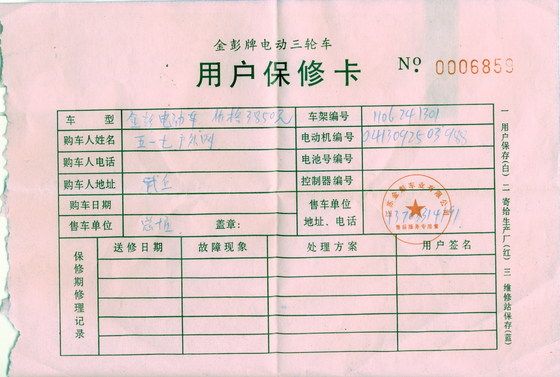 金彭牌电动三轮车
用户保修卡 No 0006859
车型 金彭电动车 价格3850元 车架编号 1106241301
购车人姓名 五一七 电动机编号
购车人电话 电池号编号
购车人地址 控制器编号
购车日期 售车单位
售车单位 盖章： 地址、电话
江苏金彭车业有限公司
售后服务专用章
保修期修理记录 送修日期 故障现象 处理方案 用户签名
一 用户保存(白) 二 寄给生产厂(红) 三 维修站保存(蓝)